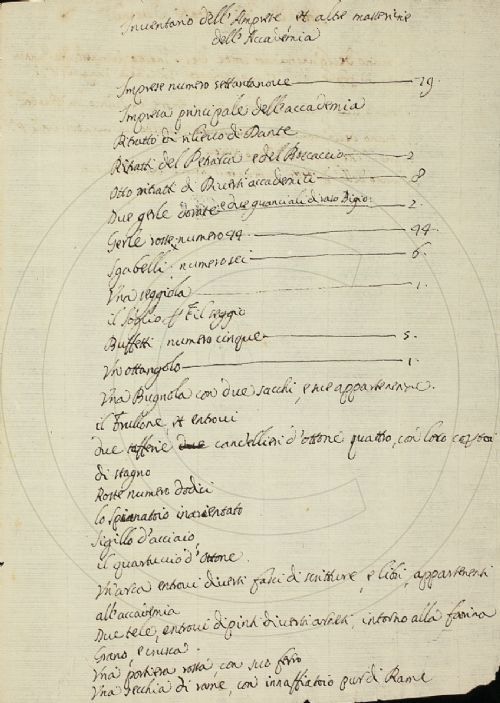 Inventario dell'Imprese et altre masserizie
dell'Accademia
Imprese numero settantanove 79
Impresa principale dell'accademia
Ritratto di rilievo di Dante
Ritratti del Petrarca e del Boccaccio 2
Otto ritratti di Diversi accademici 8
Due gerle dorate e due guanciali di raso Bigio 2.
Gerle rosse numero 44. 44
Sgabelli numero sei 6.
Una seggiola 1.
il soglio il seggio
Buffetti numero cinque 5.
Un ottangolo 1.
Una Bugnola con due sacchi, e sue appartenenze.
il Frullone, et entrovi
due tafferie due candellieri d'ottone quattro, con loro
di stagno
Roste numero dodici
lo spianatoio inargentato
sigillo d'acciaio,
il quartuccio d'ottone.
Un'arca entrovi diversi fasci di scritture, e libri, appartenenti
all'accademia
Due tele, entrovi dipinti diversi intorno alla farina
Grano, e crusca.
Una portiera rossa, con suo ferro
Una secchia di rame, con innaffiatoio pur di Rame